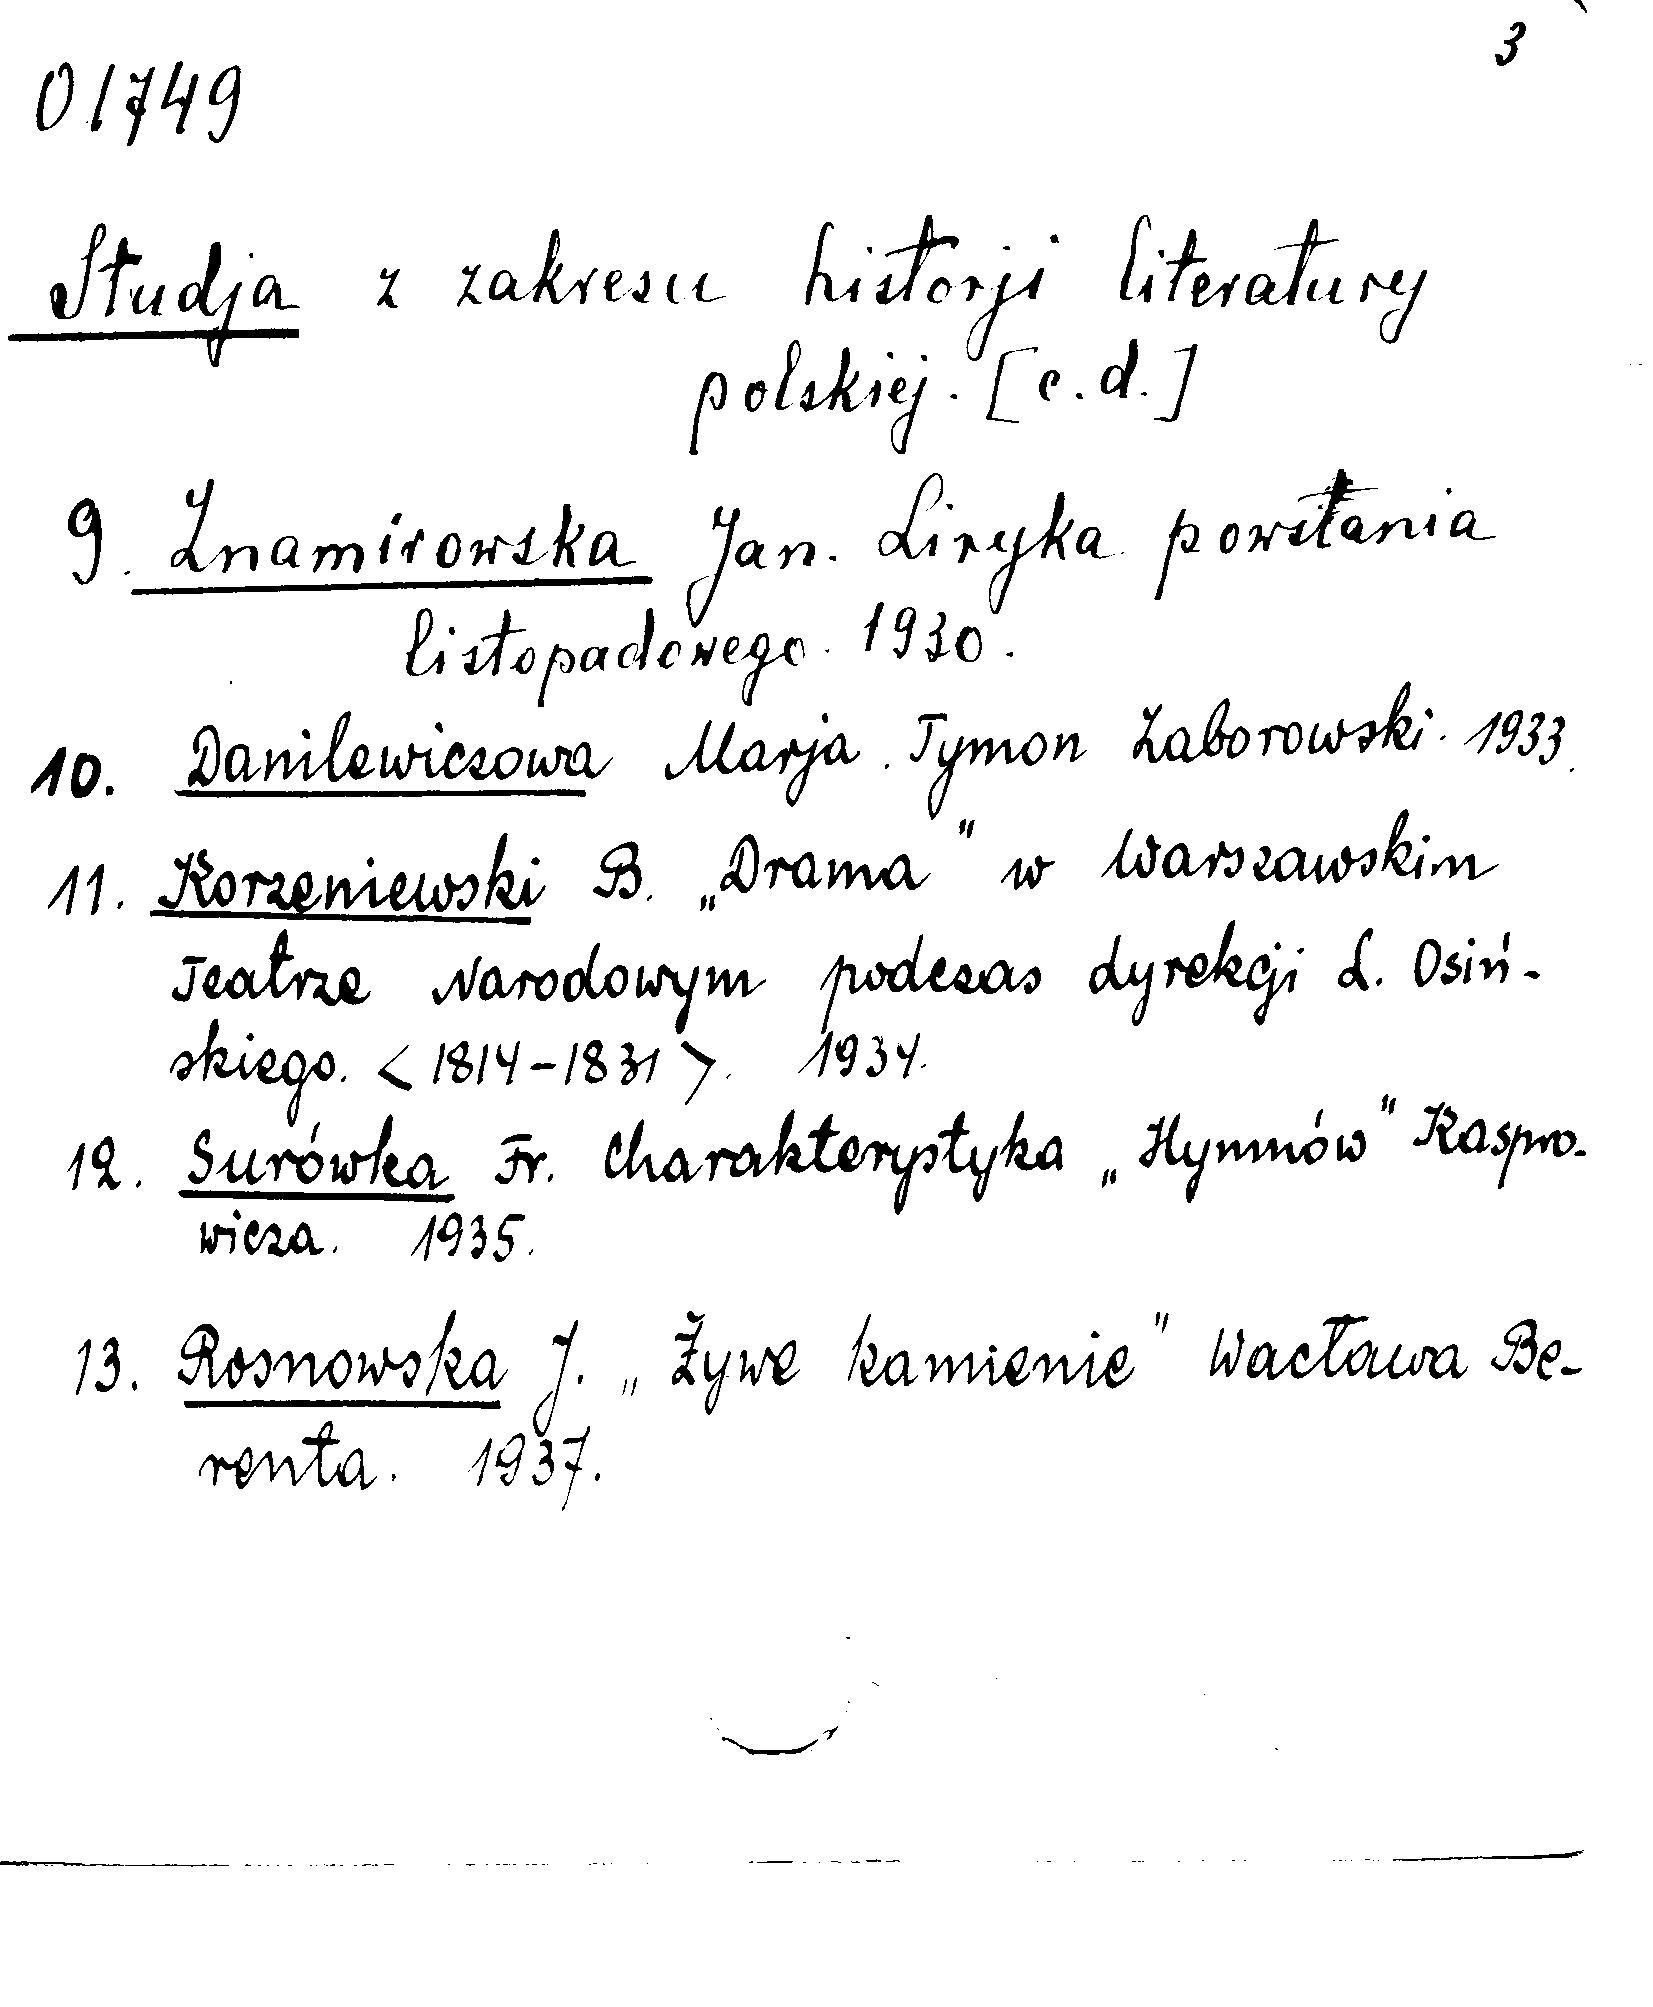 3
01749
Studja z zakresu historji literatury
polskiej. [c.d.]
9. Znamirowska Jan. Liryka powstania
listopadowego. 1930.
10. Danilewiczowa Marja. Tymon Zaborowski. 1933.
11. Korzeniewski B. „Drama" w Warszawskim
Teatrze Narodowym podczas dyrekcji L. Osiń-
skiego. <1814-1831>. 1934.
12. Surówka Fr. Charakterystyka „Hymnów" Kaspro-
wicza. 1935.
13. Rosnowska J. „Żywe kamienie" Wacława Be-
renta. 1937.